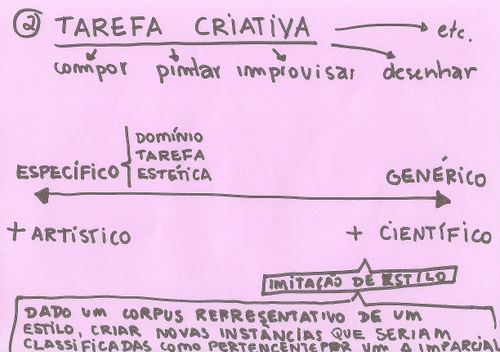 ② TAREFA CRIATIVA → etc.
compor pintar improvisar desenhar
DOMÍNIO
TAREFA
ESPECÍFICO ESTÉTICA GENÉRICO
+ ARTÍSTICO + CIENTÍFICO
IMITAÇÃO DE ESTILO
DADO UM CORPUS REPRESENTATIVO DE UM
ESTILO, CRIAR NOVAS INSTÂNCIAS QUE SERIAM
CLASSIFICADAS COMO PERTENCENTE POR UM A IMPARCIA